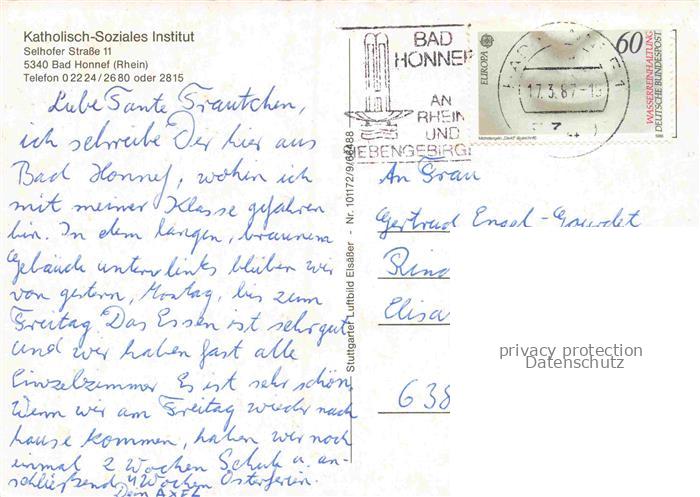 Katholisch-Soziales Institut
Selhofer Straße 11
5340 Bad Honnef (Rhein)
Telefon 0 22 24 / 26 80 oder 28 15
Liebe Tante Trautchen,
ich schreibe Dir hier aus
Bad Honnef, wohin ich
mit meiner Klasse gefahren
bin. In dem langen, braunem
Gebäude unten links bleiben wir
von gestern, Montag, bis zum
Freitag. Das Essen ist sehr gut
und wir haben fast alle
Einzelzimmer. Es ist sehr schön.
Wenn wir am Freitag wieder nach
hause kommen, haben wir noch
einmal 2 Wochen Schule u. an-
schließend 4 Wochen Osterferien.
Dein AXEL
Stuttgarter Luftbild Elsäßer - Nr. 101172/9/66488
BAD
HONNEF
AN
RHEIN
UND
SIEBENGEBIRGE
17.3.87-1
EUROPA
60
WASSERREINHALTUNG
DEUTSCHE BUNDESPOST
An Frau
Gertrud Engel-
Elisa
638
privacy protection
Datenschutz